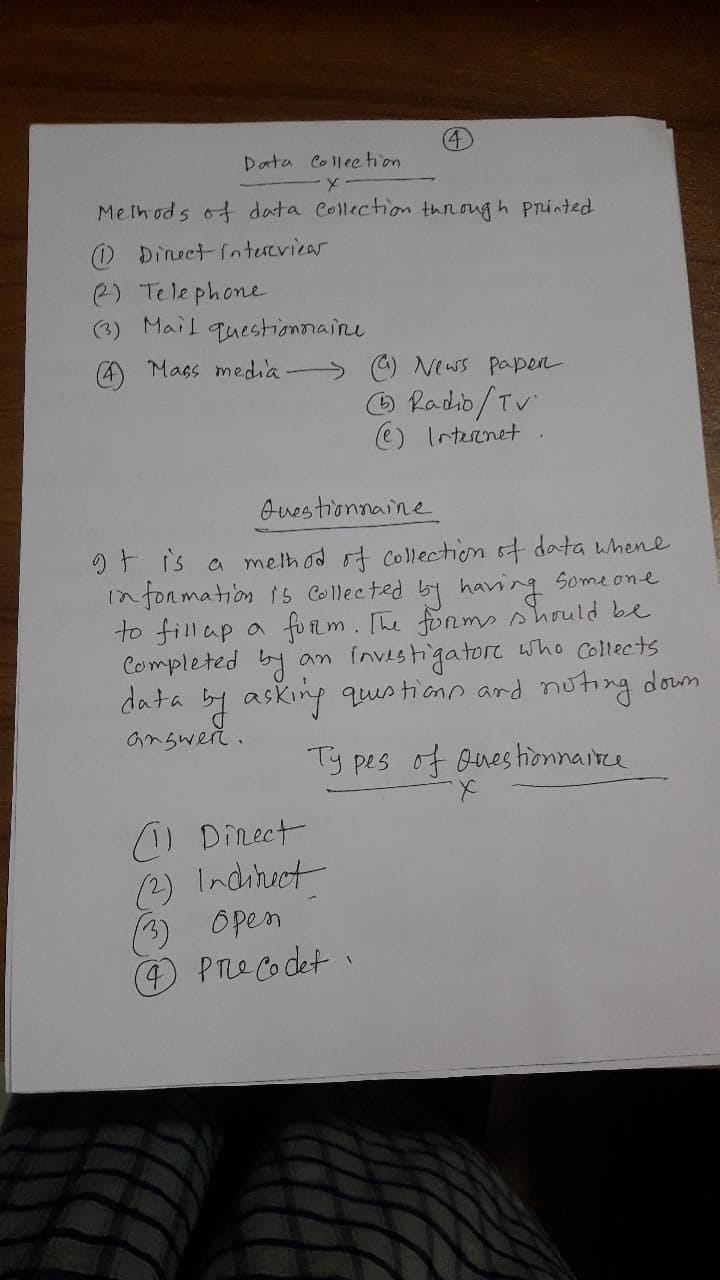 ④
Data Collection
x
Methods of data Collection through printed
① Direct Interview
(2) Telephone
(3) Mail questionnaire
④ Mass media → (a) News paper
(b) Radio/TV
(c) Internet.
Questionnaire
It is a method of collection of data where
information is collected by having someone
to fillup a form. The forms should be
Completed by an investigator who collects
data by asking questions and noting down
answer.
Types of Questionnaire
x
(1) Direct
(2) Indirect
(3) Open
④ Precodet.